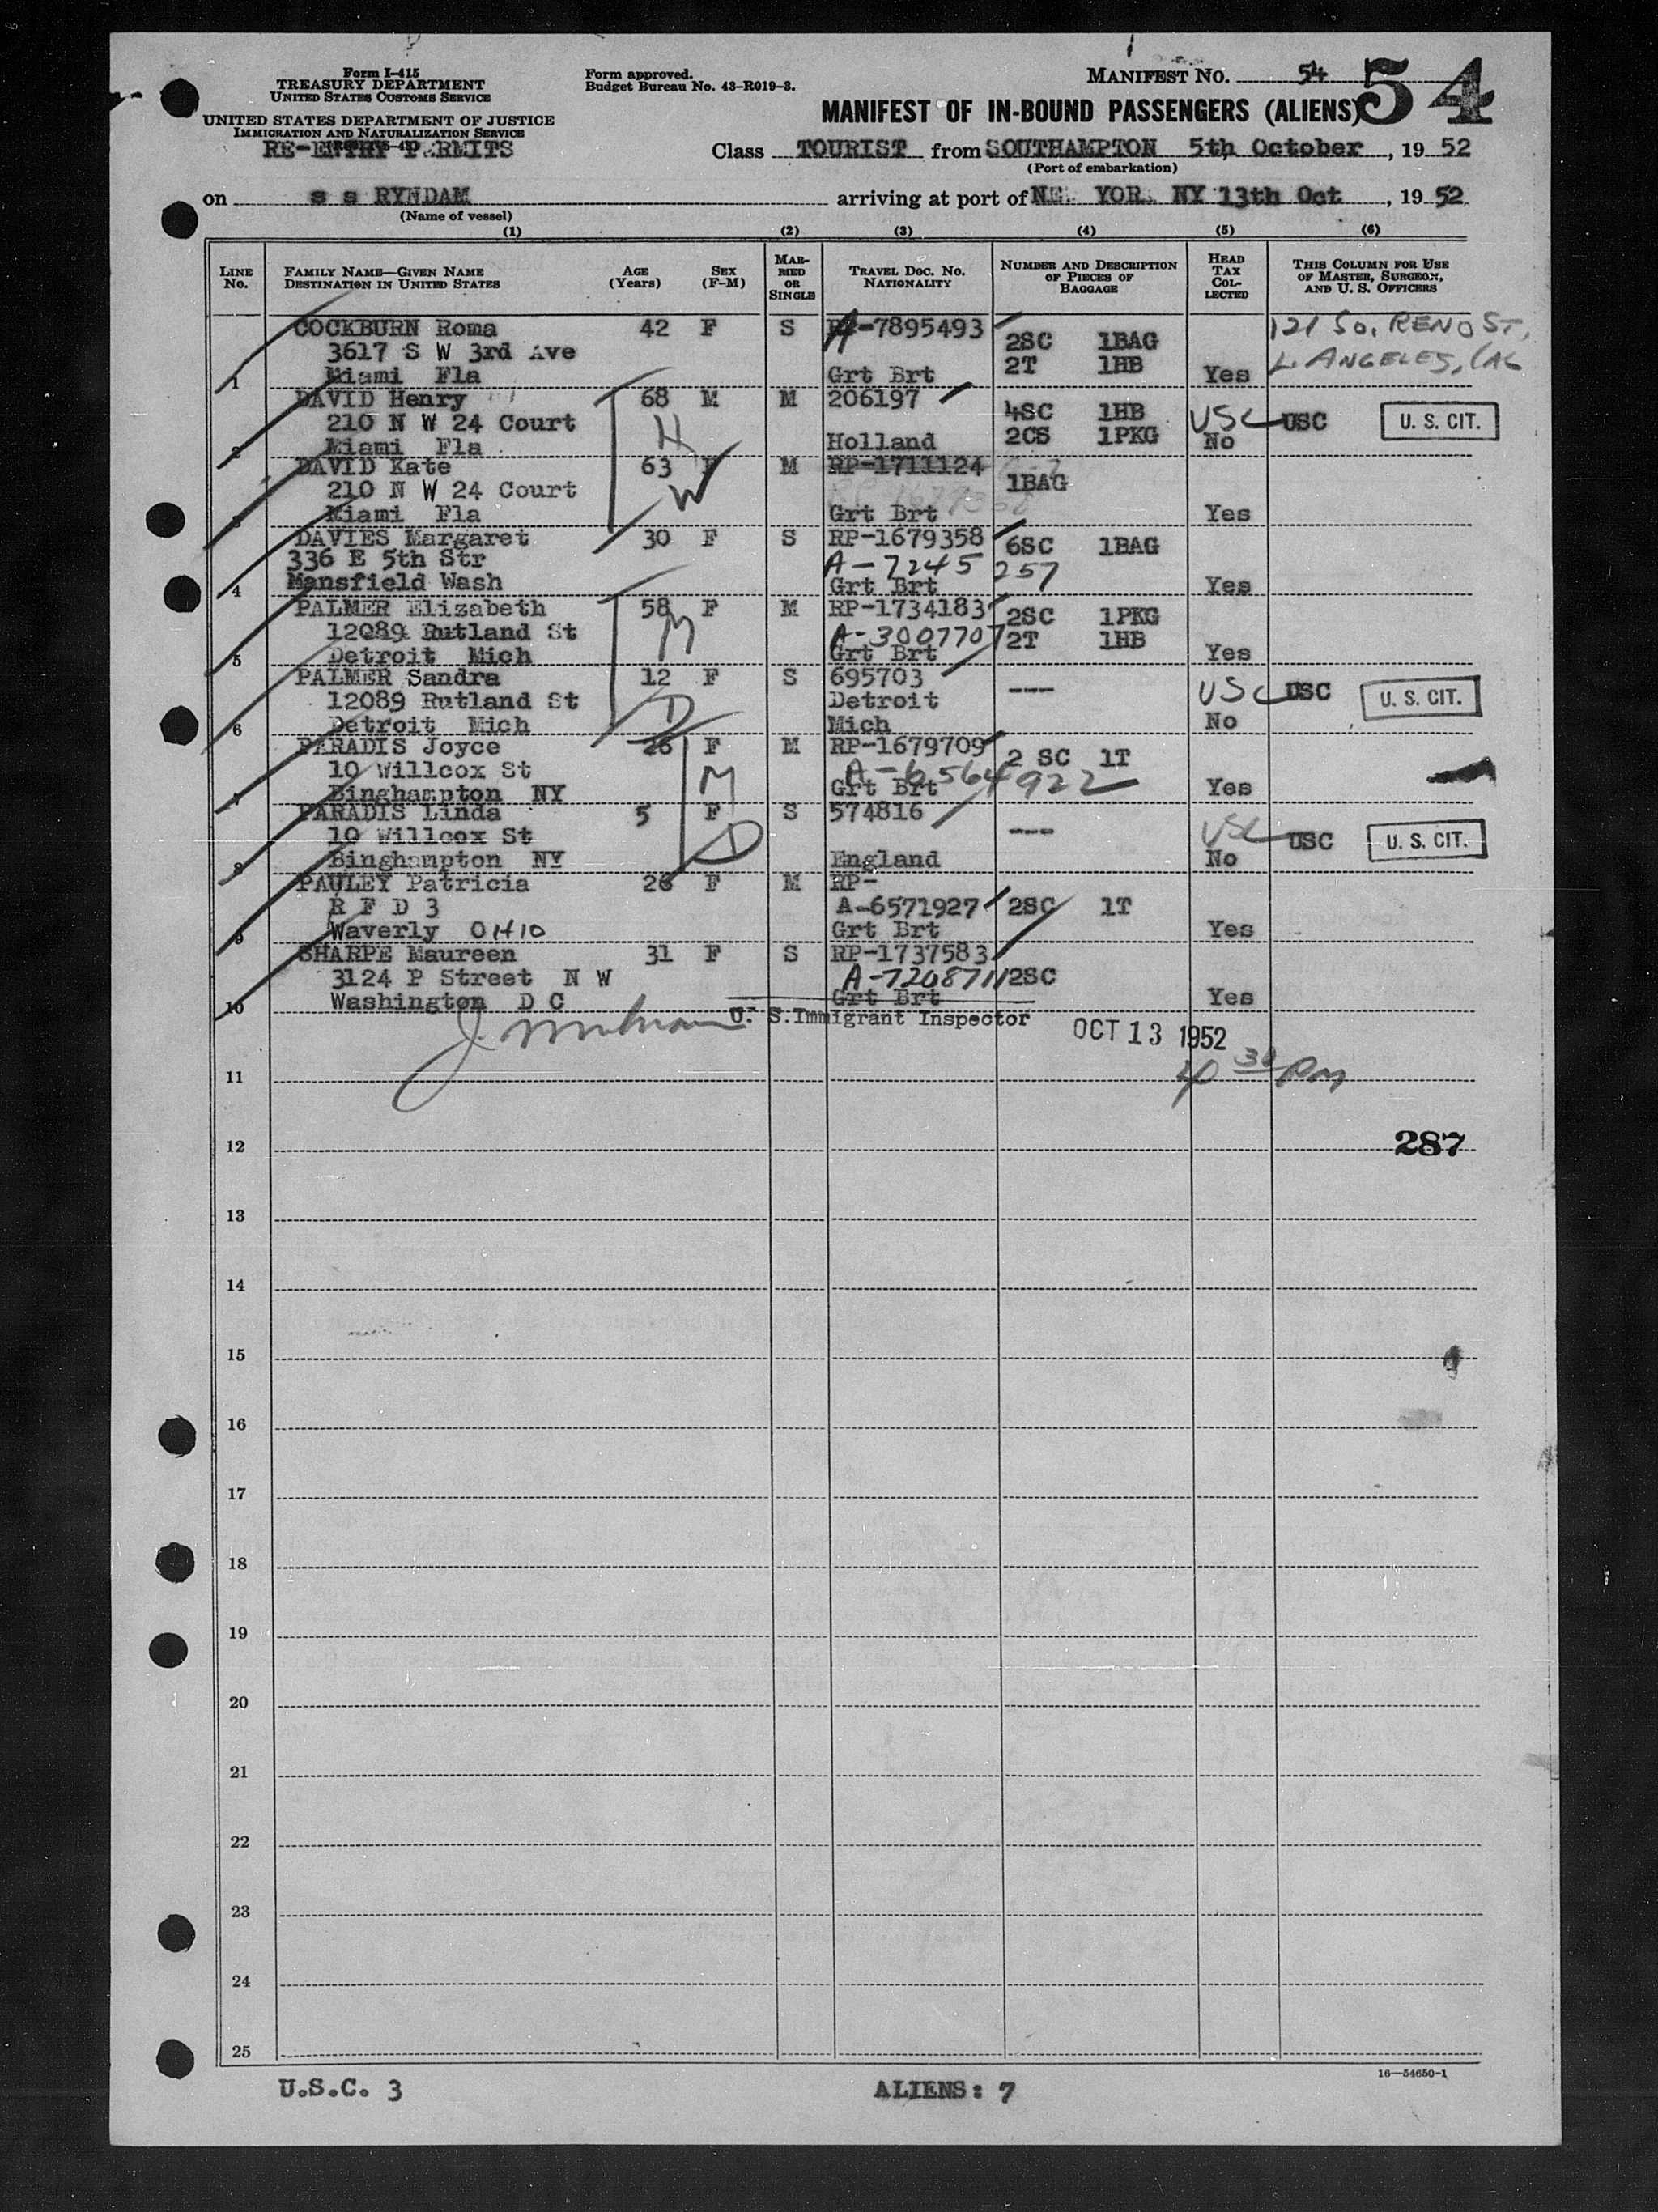 Form I-415
TREASURY DEPARTMENT
UNITED STATES CUSTOMS SERVICE
UNITED STATES DEPARTMENT OF JUSTICE
IMMIGRATION AND NATURALIZATION SERVICE
RE-ENTRY PERMITS
Form approved.
Budget Bureau No. 43-R019-3.
MANIFEST NO. 54
54
MANIFEST OF IN-BOUND PASSENGERS (ALIENS)
Class TOURIST from SOUTHAMPTON 5th October, 19 52
(Port of embarkation)
on s s RYNDAM arriving at port of NE YOR NY 13th Oct, 19 52
(Name of vessel)
(1) (2) (3) (4) (5) (6)
LINE NO. FAMILY NAME—GIVEN NAME DESTINATION IN UNITED STATES AGE (Years) SEX (F-M) MARRIED OR SINGLE TRAVEL DOC. NO. NATIONALITY NUMBER AND DESCRIPTION OF PIECES OF BAGGAGE HEAD TAX COLLECTED THIS COLUMN FOR USE OF MASTER, SURGEON, AND U. S. OFFICERS
COCKBURN Roma 42 F S A-7895493 121 SO. RENO ST,
3617 S W 3rd Ave 2SC 1BAG L. ANGELES, CAL
1 Miami Fla Grt Brt 2T 1HB Yes
DAVID Henry 68 M M 206197
210 N W 24 Court H 4SC 1HB USC USC U. S. CIT.
2 Miami Fla Holland 2CS 1PKG No
DAVID Kate 63 F M RP-1711124
210 N W 24 Court W 1BAG
3 Miami Fla Grt Brt Yes
DAVIES Margaret 30 F S RP-1679358 6SC 1BAG
336 E 5th Str A-7245 257
4 Mansfield Wash Grt Brt Yes
PALMER Elizabeth 58 F M RP-1734183 2SC 1PKG
12089 Rutland St M A-3007707 2T 1HB
5 Detroit Mich Grt Brt Yes
PALMER Sandra 12 F S 695703
12089 Rutland St D Detroit --- USC USC U. S. CIT.
6 Detroit Mich Mich No
PARADIS Joyce 26 F M RP-1679709 2 SC 1T
10 Willcox St M A-6564922
7 Binghampton NY Grt Brt Yes
PARADIS Linda 5 F S 574816
10 Willcox St D --- USC USC U. S. CIT.
8 Binghampton NY England No
PAULEY Patricia 26 F M RP-
R F D 3 A-6571927 2SC 1T
9 Waverly OHIO Grt Brt Yes
SHARPE Maureen 31 F S RP-1737583
3124 P Street N W A-7208711 2SC
10 Washington D C Grt Brt Yes
U. S.Immigrant Inspector OCT 13 1952
4 30 PM
11
12 287
13
14
15
16
17
18
19
20
21
22
23
24
25
16—54650-1
U.S.C. 3 ALIENS: 7